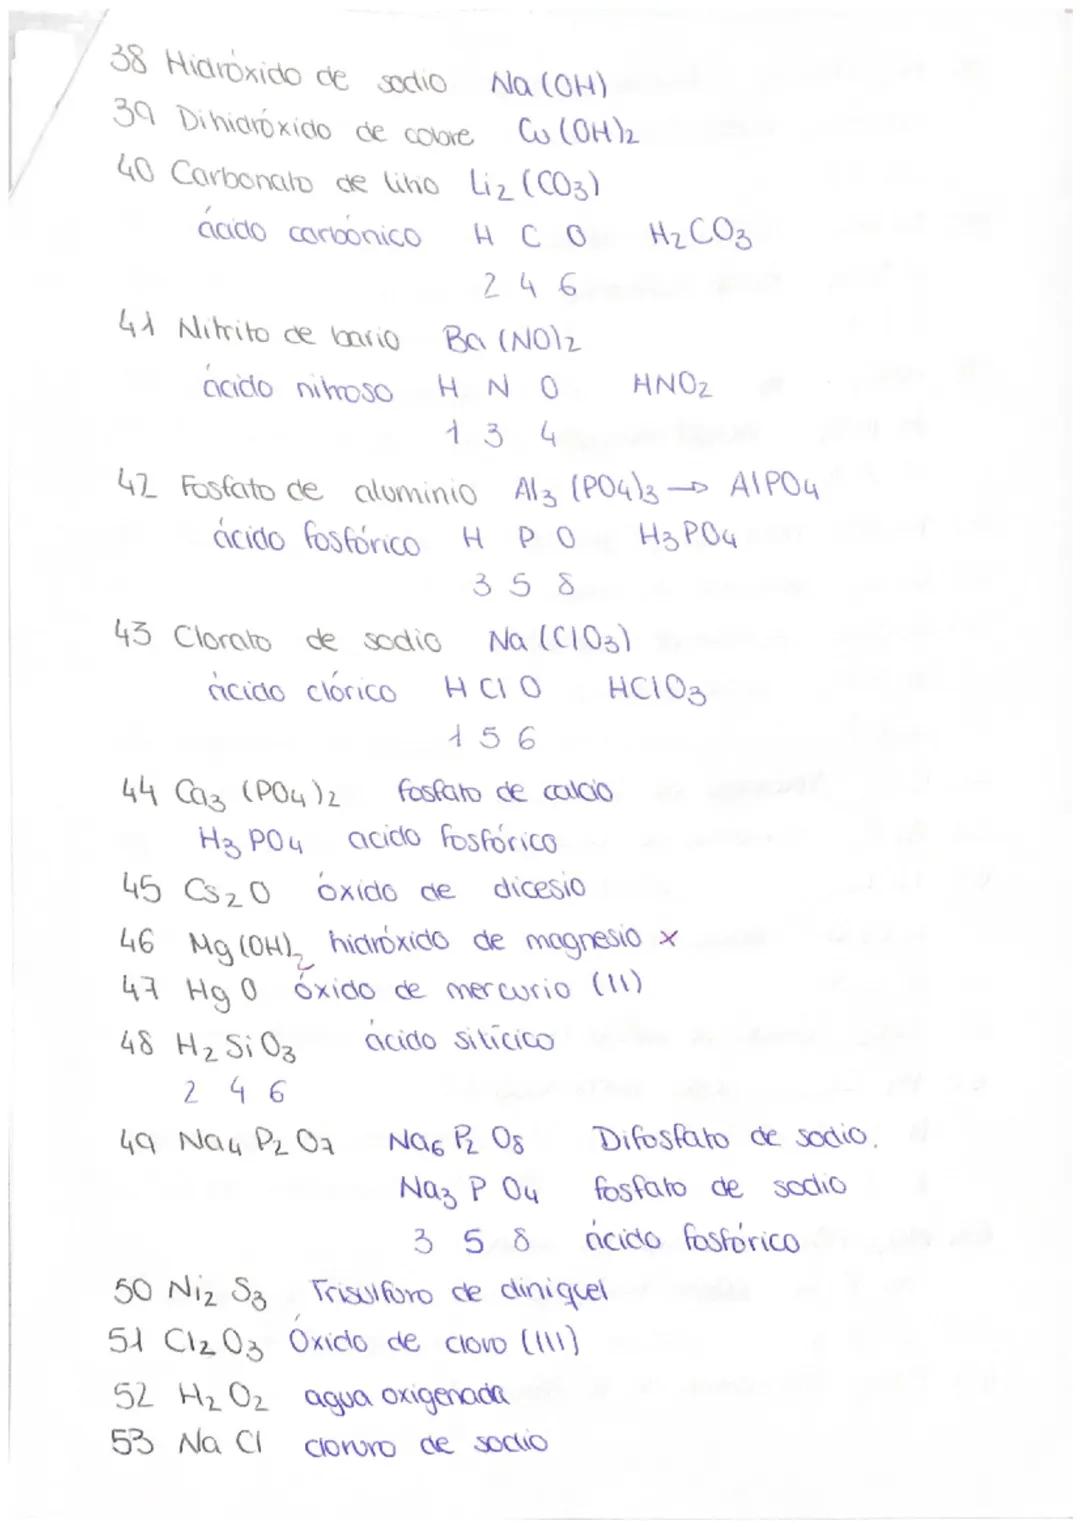 38 Hidróxido de sodio Na (OH)
39 Dihidróxido de cobre Cu (OH)2
40 Carbonato de litio Li2 (CO3)
ácido carbónico H C O H2CO3
2 4 6
41 Nitrito de bario Ba (NO)2
ácido nitroso H N O HNO2
1 3 4
42 Fosfato de aluminio Al3 (PO4)3 → AlPO4
ácido fosfórico H P O H3PO4
3 5 8
43 Clorato de sodio Na (ClO3)
ácido clórico H Cl O HClO3
1 5 6
44 Ca3 (PO4)2 fosfato de calcio
H3 PO4 acido fosfórico
45 Cs2O óxido de dicesio
46 Mg(OH)2 hidróxido de magnesio x
47 Hg O óxido de mercurio (II)
48 H2 Si O3 ácido silícico
2 4 6
49 Na4 P2 O7 Na6 P2 O8 Difosfato de sodio.
Na3 P O4 fosfato de sodio
3 5 8 ácido fosfórico
50 Ni2 S3 Trisulfuro de diniquel
51 Cl2 O3 Óxido de cloro (III)
52 H2 O2 agua oxigenada
53 Na Cl cloruro de sodio